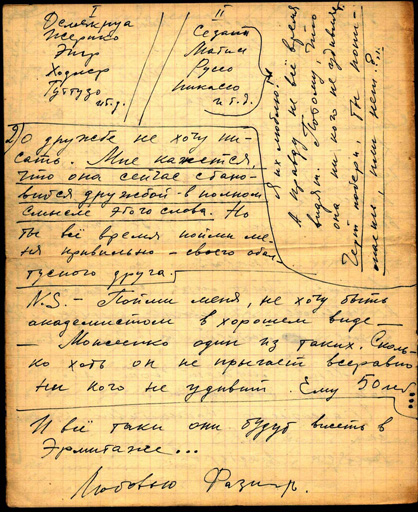 I
Делакруа
Жерико
Энгр
Ходлер
и т.д.
II
Сезанн
Матисс
Руссо
Пикассо
и т.д.
Я их люблю!
А правду не всё время
видят. Потому, что
она ни кого не удивляет
Чёрт побери, ты пони-
маешь, или нет?..
2) О дружбе не хочу пи-
сать. Мне кажется,
что она сейчас стано-
вится дружбой в полном
смысле этого слова. Но
ты всё время пойми ме-
ня правильно – своего
тусного друга.
N.S. – Пойми меня, не хочу быть
академистом в хорошем виде –
– Моисеенко один из таких. Сколь-
ко хоть он не прыгает всёравно
ни кого не удивит. Ему 50 лет...
И всё таки они будут висеть в
Эрмитаже...
Любовью